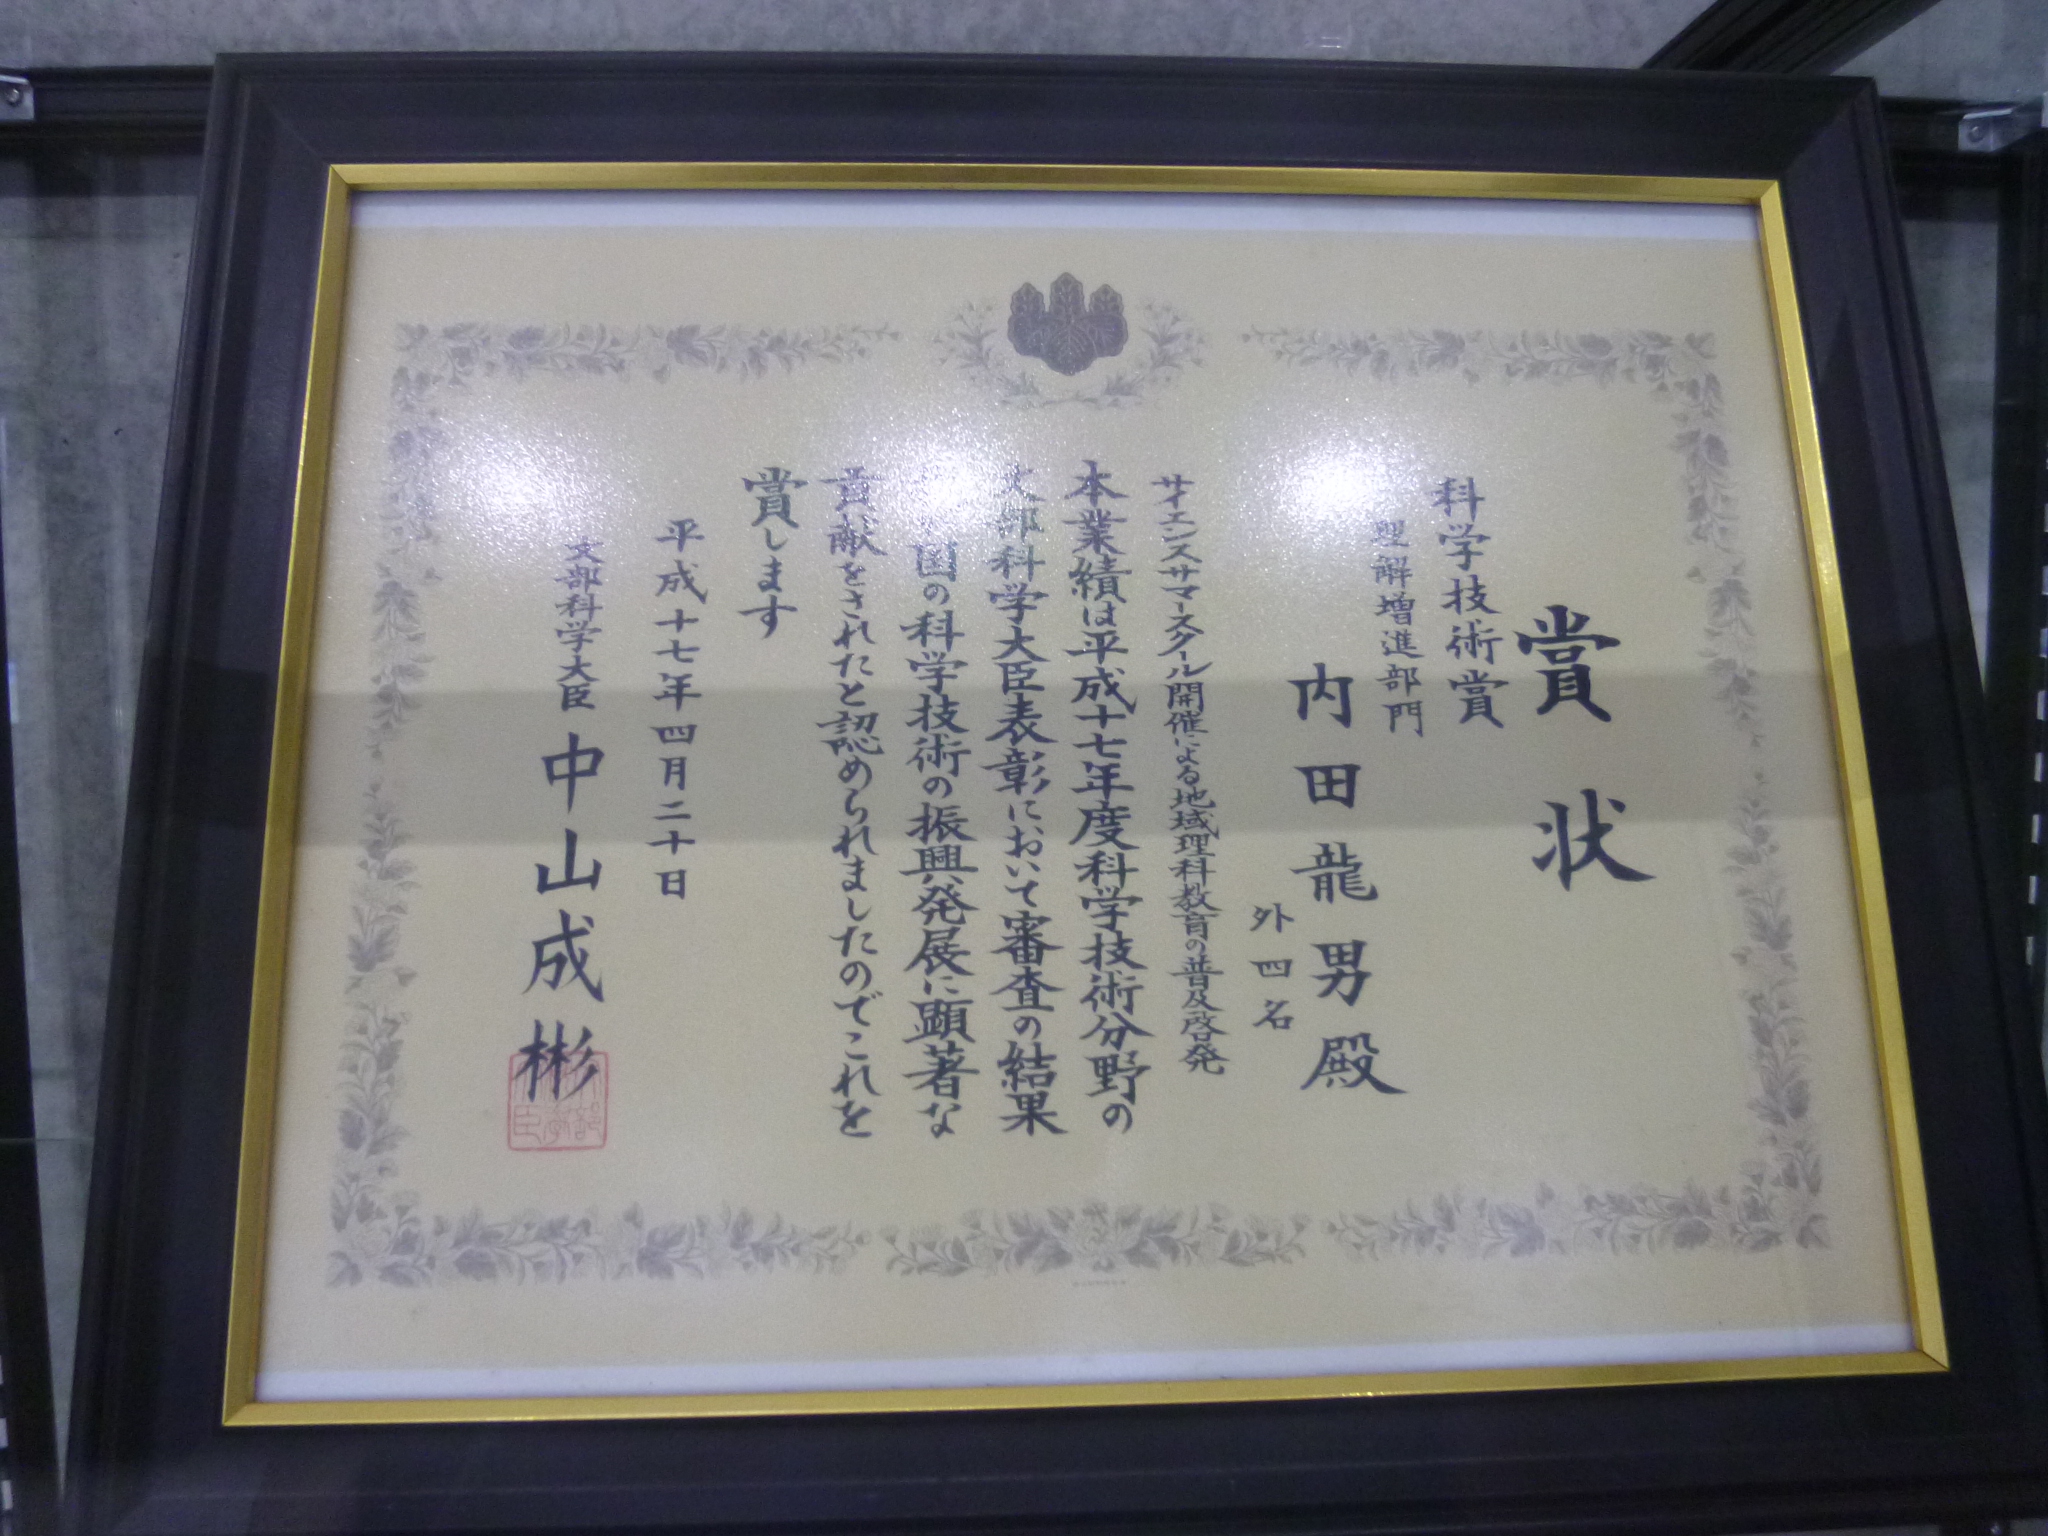 賞状
科学技術賞
理解増進部門
内田龍男殿
外四名
サイエンスサマースクール開催による地域理科教育の普及啓発
本業績は平成十七年度科学技術分野の
文部科学大臣表彰において審査の結果
国の科学技術の振興発展に顕著な
貢献をされたと認められましたのでこれを
賞します
平成十七年四月二十日
文部科学大臣 中山成彬